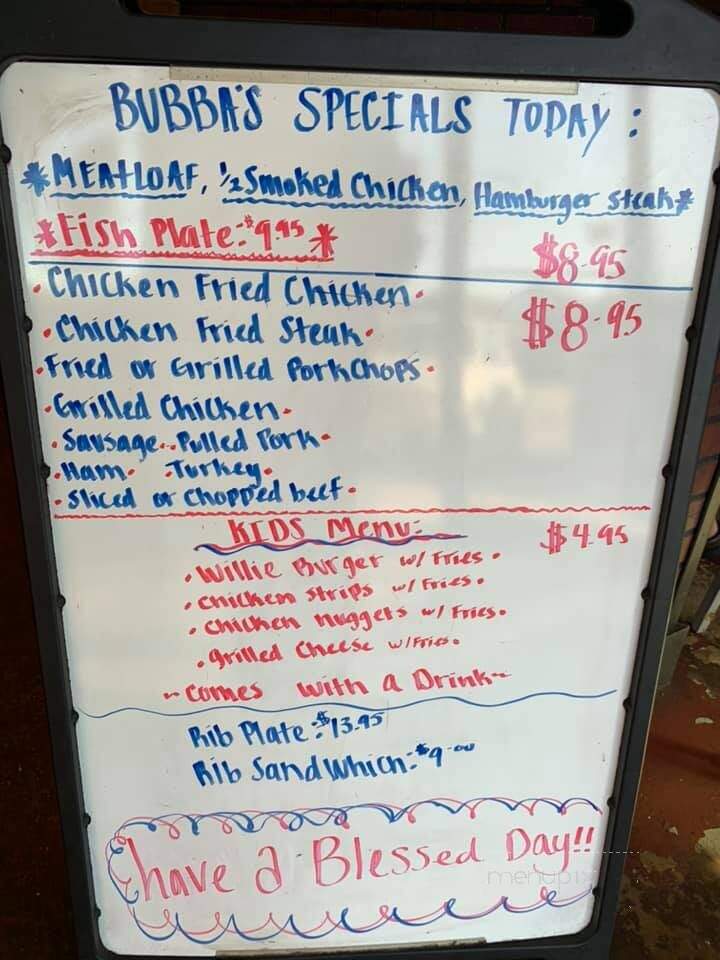 BUBBA'S SPECIALS TODAY :
*MEATLOAF, 1/2 Smoked Chicken, Hamburger Steak*
*Fish Plate:$9.95* $8.95
• Chicken Fried Chicken • $8.95
• Chicken Fried Steak •
• Fried or Grilled PorkChops •
• Grilled Chicken •
• Sausage • • Pulled Pork •
• Ham • • Turkey •
• Sliced or Chopped beef •
KIDS Menu: $4.95
• Willie Burger w/ Fries •
• Chicken Strips w/ Fries •
• Chicken Nuggets w/ Fries •
• grilled Cheese w/Fries •
~ Comes with a Drink ~
Rib Plate:$13.95
Rib Sandwhich:$9.00
have a Blessed Day!!
menupix